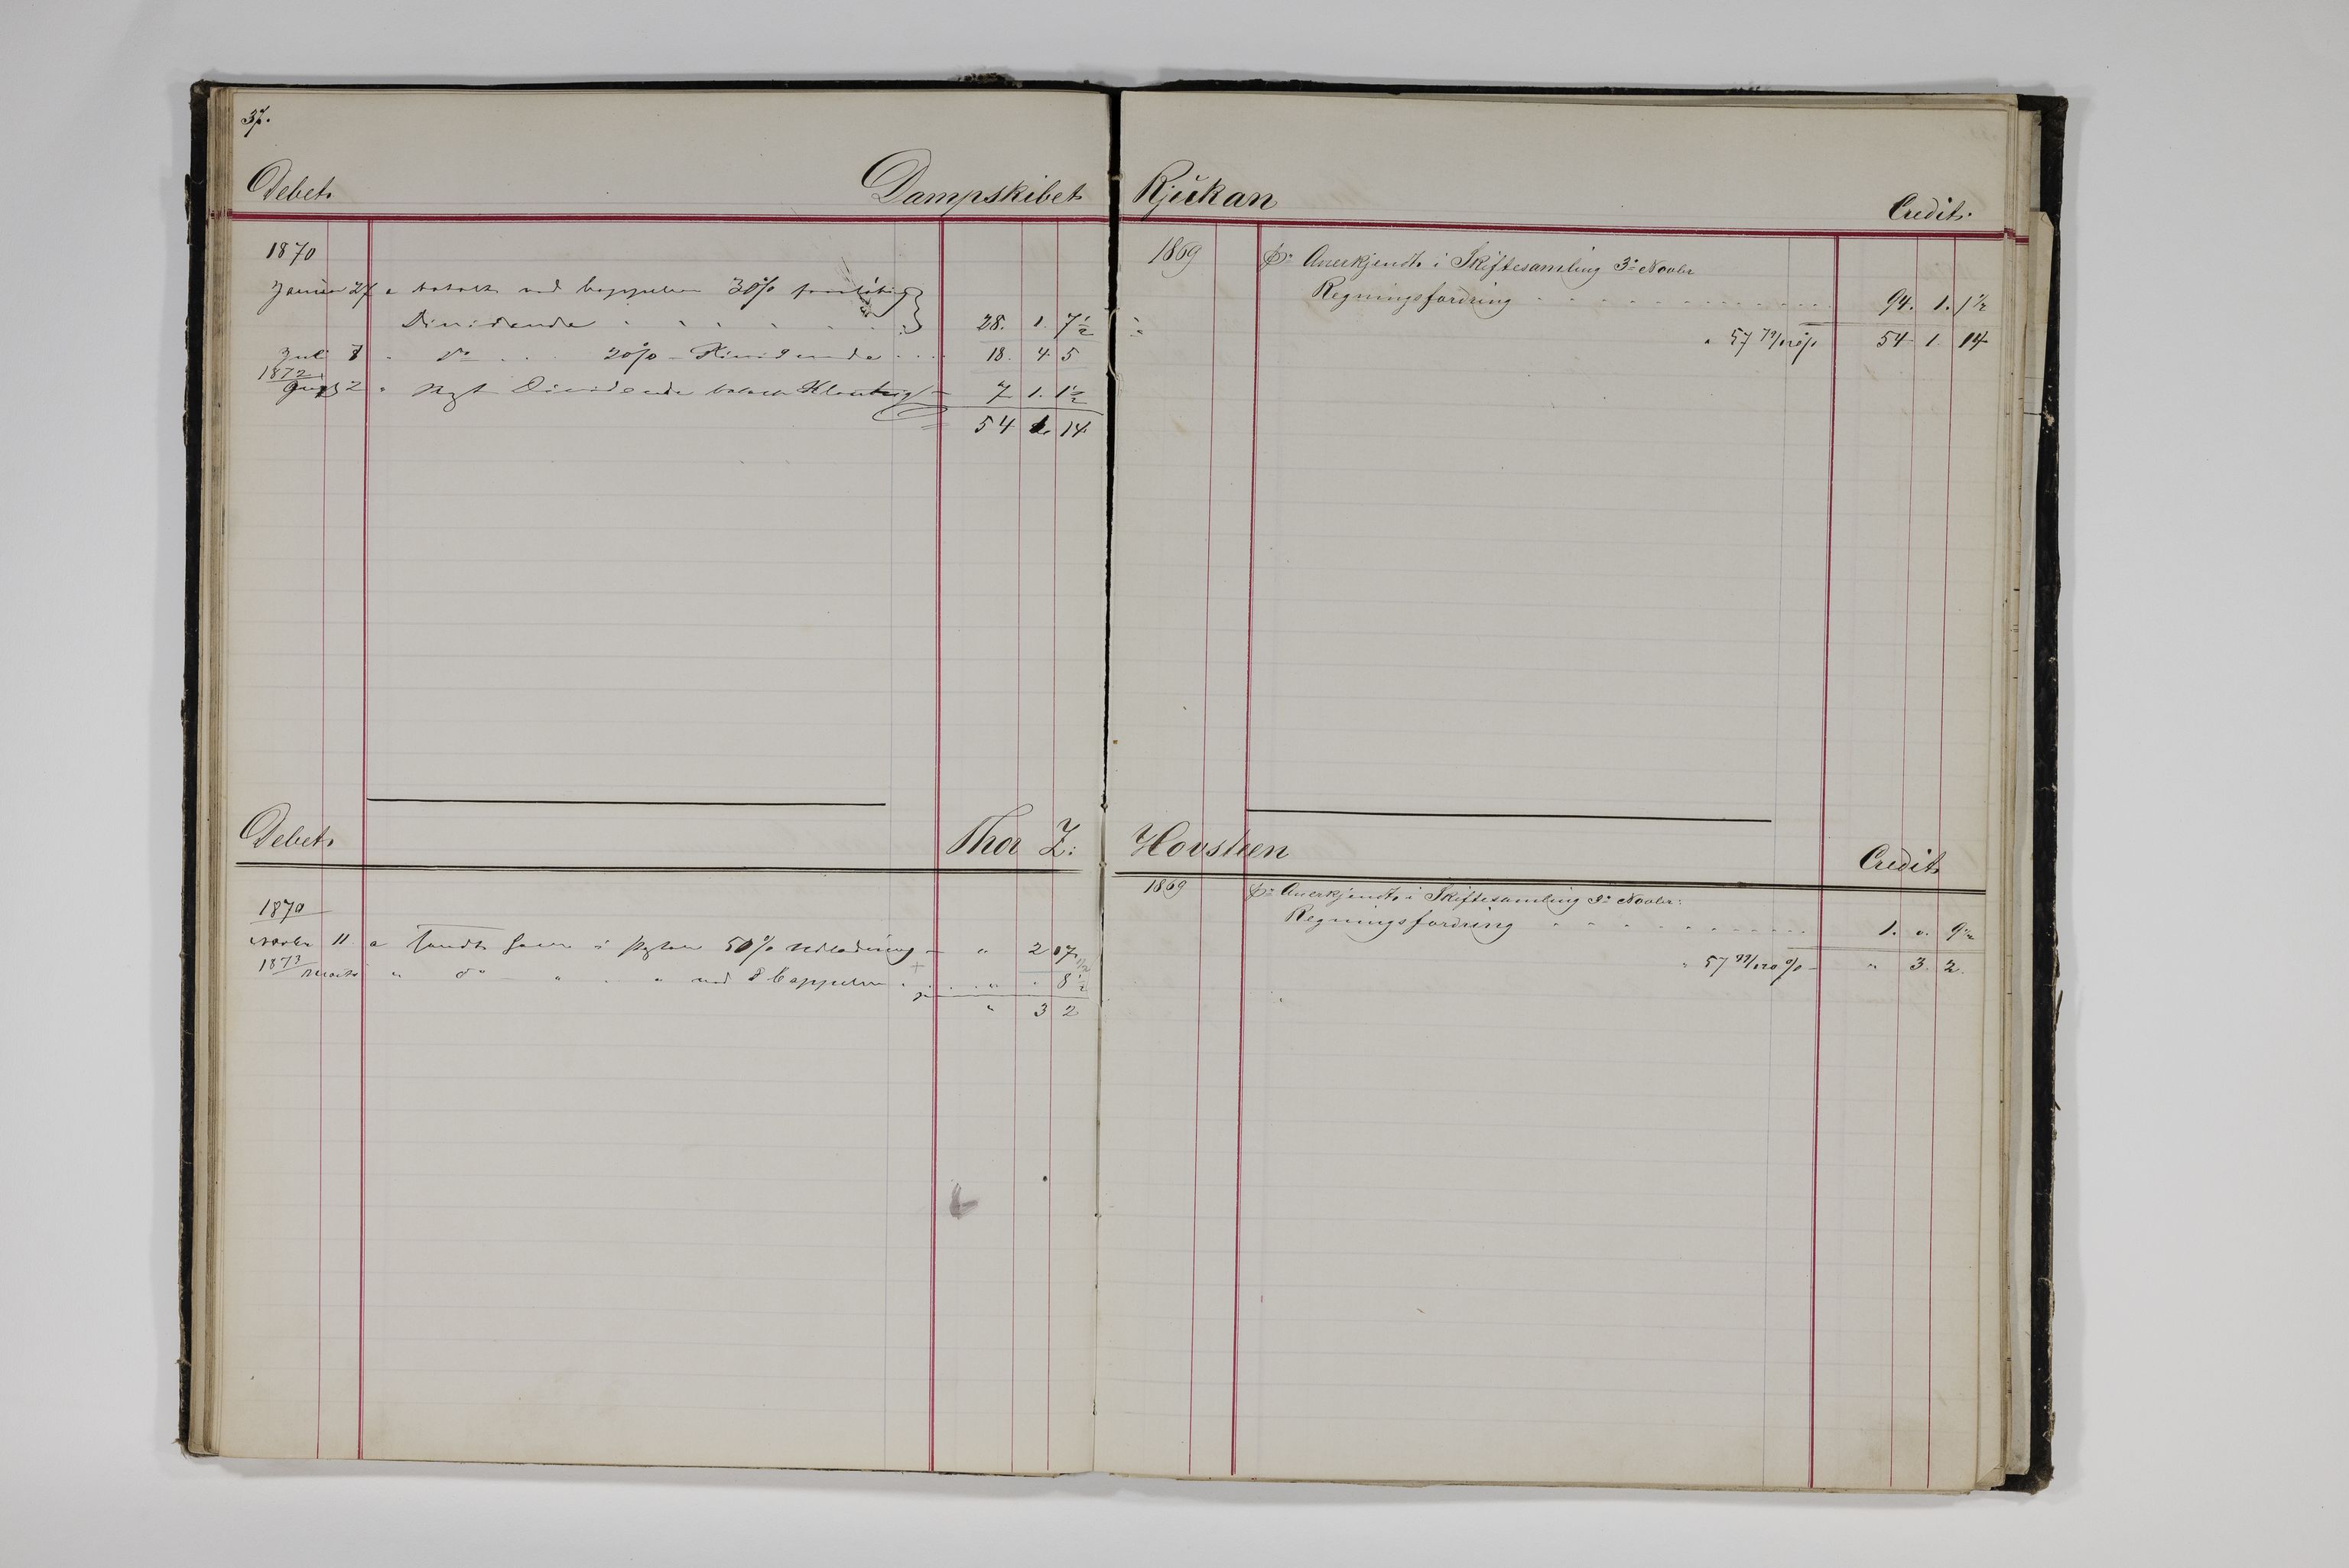 37.
Debet. Dampskibet Rjukan Credit.
1870
Januar 27 a betalt ved Cappelen 30% foreløbig
Dividende 28. 1. 7½
Juli 8 - do 20% - Dividende 18. 4. 5
1872
Augst 2 Dividende 7 1. 1½
54 1. 14
1869 Pr Anerkjendt i Skiftesamling 3die Novbr
Regningsfordring 94. 1. 1½
57 79/120 % 54 1. 14
Debet. Thor Z: Hovsteen Credit.
1870
Novbr 11 a Sendt 50% Udlodning - " 2 17
1873 Marts " do " " ved Cappelen " 8½
" 3 2
1869 Pr Anerkjendt i Skiftesamling 3die Novbr:
Regningsfordring 1. 0. 9½
57 79/120 % - " 3. 2.